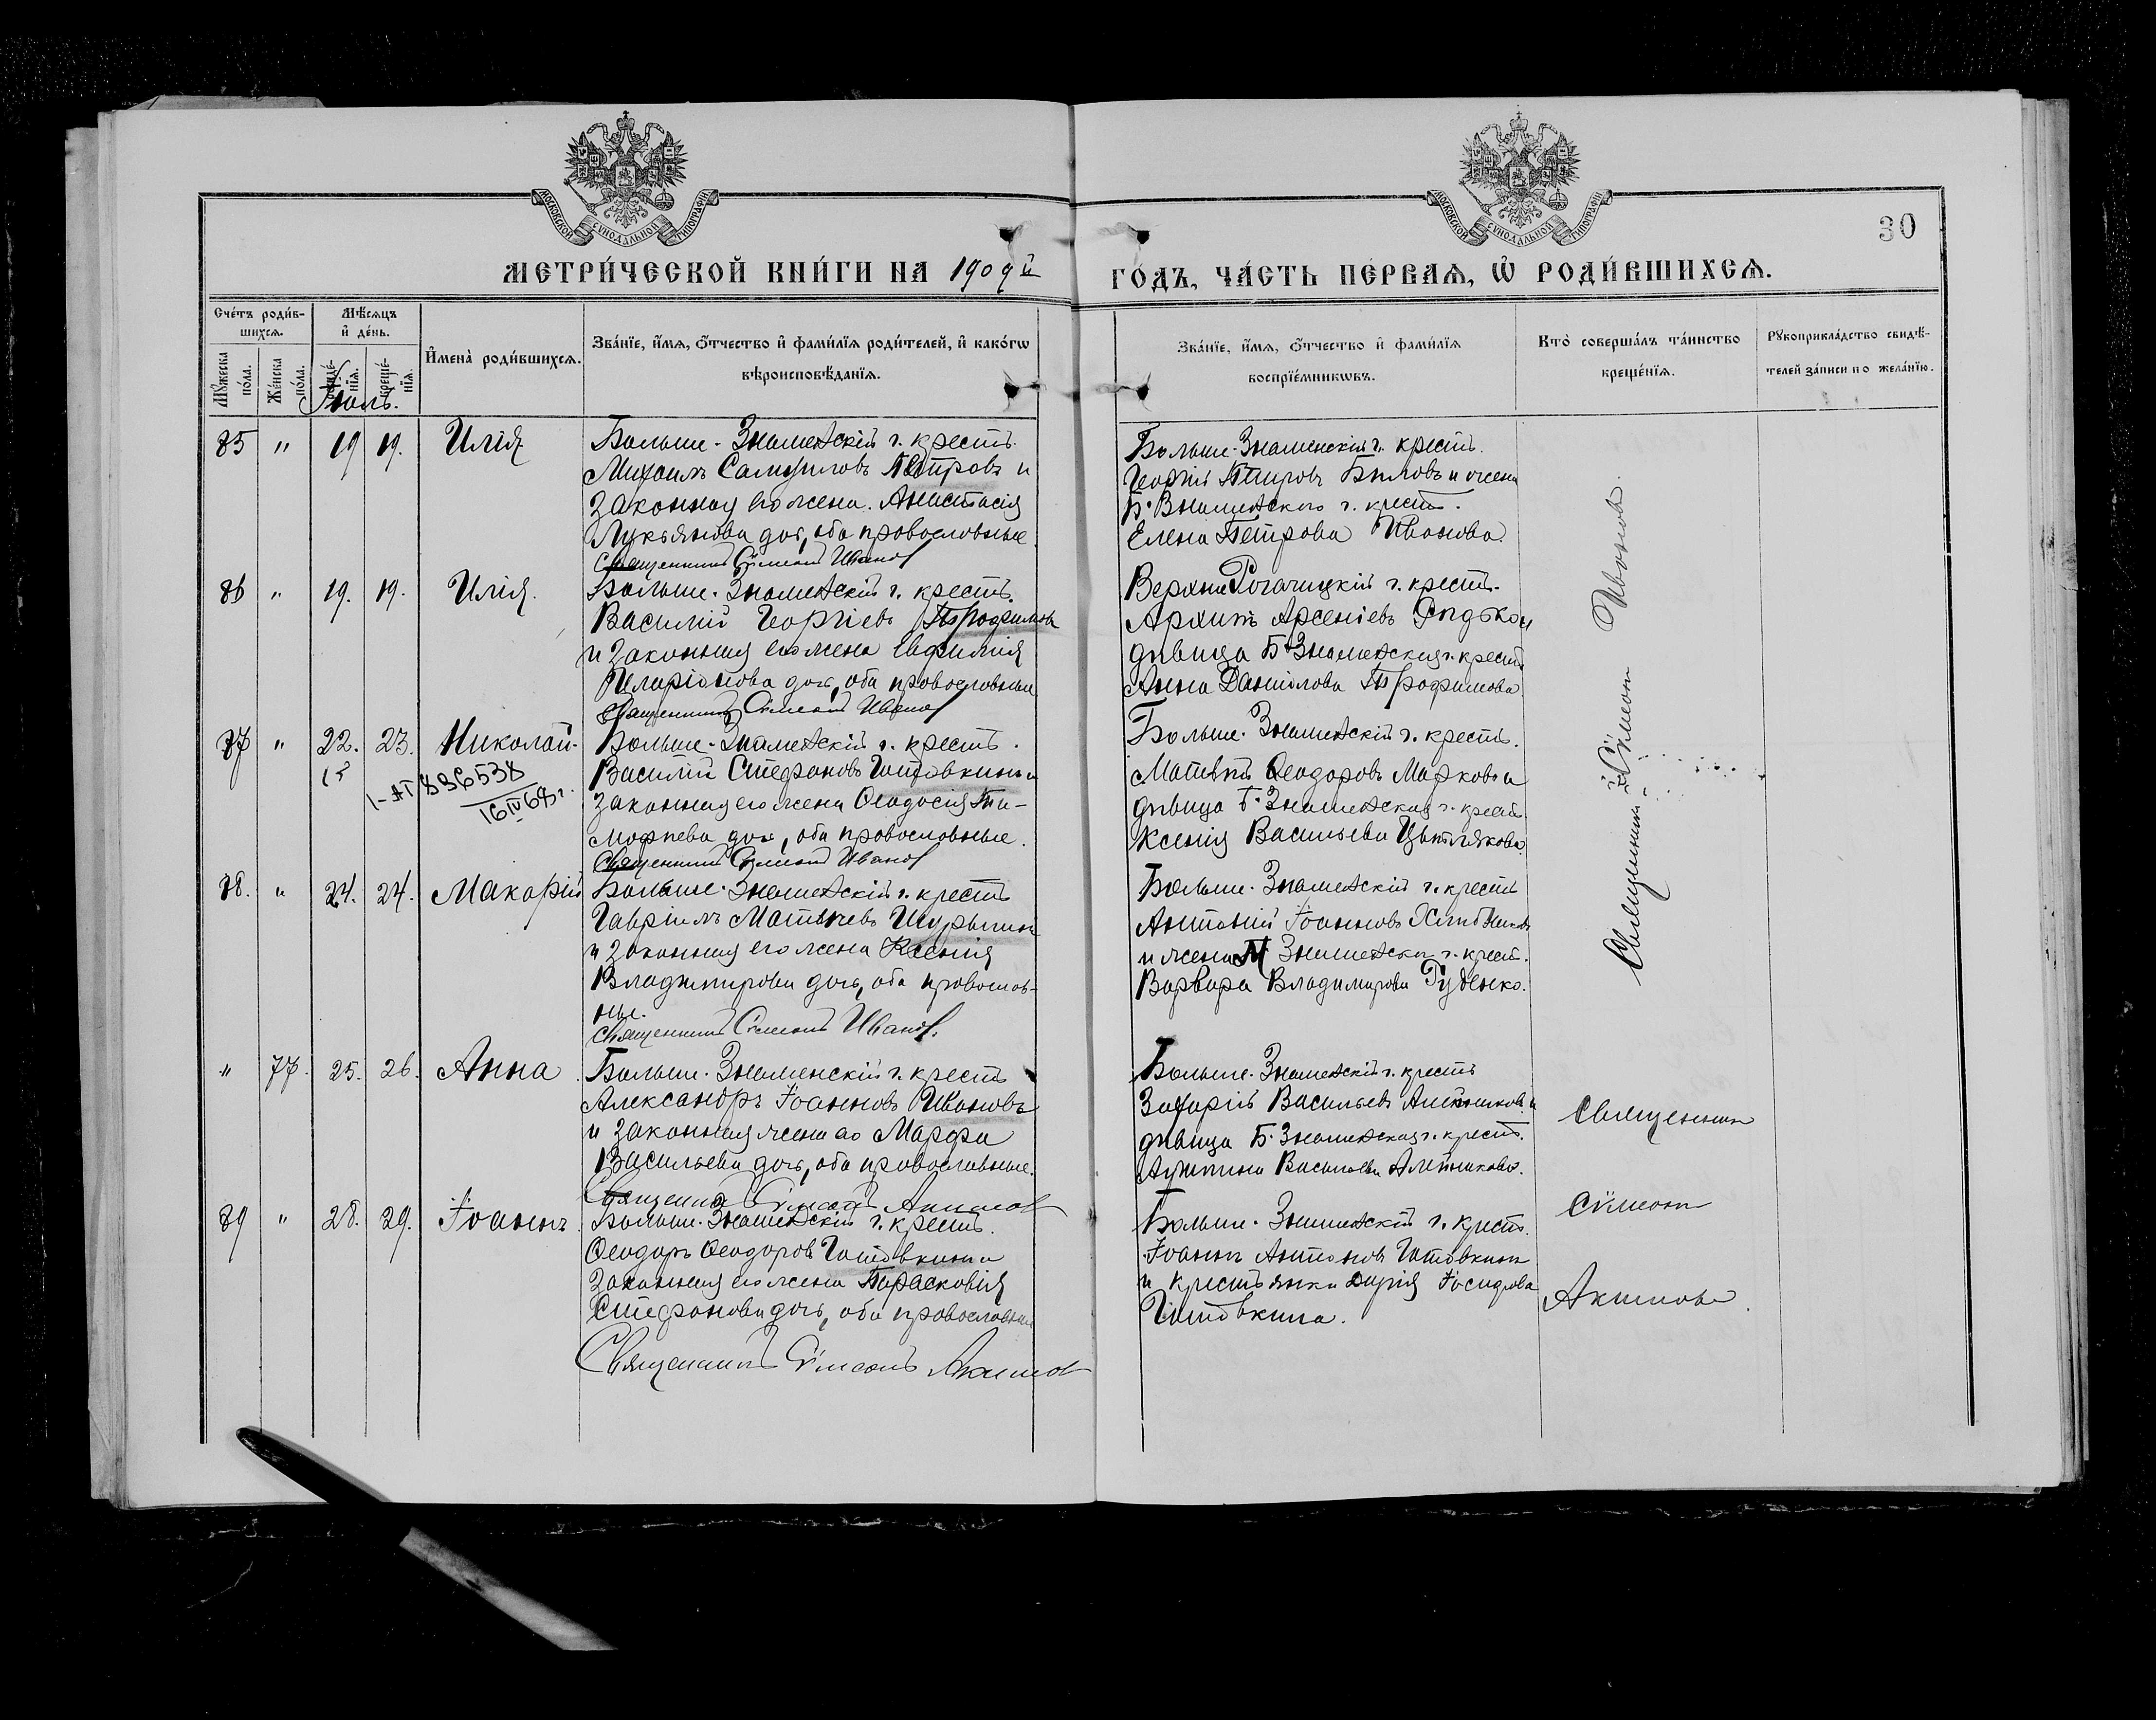 МОСКОВСКОЙ СѴНОДАЛЬНОЙ ТИПОГРАФІИ
МОСКОВСКОЙ СѴНОДАЛЬНОЙ ТИПОГРАФІИ
30
МЕТРИ́ЧЕСКОЙ КНИ́ГИ НА 1909й ГО́ДЪ, ЧА́СТЬ ПЕ́РВАѦ, Ѡ҆ РОДИ́ВШИХСѦ.
Сче́тъ роди́в-
шихсѧ.
Мѣ́сѧцъ
и҆ де́нь.
И҆мена̀ роди́вшихсѧ.
Зва́нїе, и҆́мѧ, ѻ҆́тчество и҆ фами́лїѧ роди́телей, и҆ како́гѡ
вѣроисповѣ́данїѧ.
Зва́нїе, и҆́мѧ, ѻ҆́тчество и҆ фами́лїѧ
воспрїе́мникѡвъ.
Кто̀ соверша́лъ та́инство
креще́нїѧ.
Рꙋкоприкла́дство свидѣ́-
телей за́писи по жела́нїю.
Мꙋ́жеска
по́ла.
Же́нска
по́ла.
креще́-
нїѧ.
Іюль.
85 " 19 19. Илія
Больше-Знаменскій г. крестъ.
Михаилъ Самуиловъ Петровъ и
законная его жена Анастасія
Лукьянова дочь, оба православные.
Священникъ Сѵмеонъ Иванов
Больше-Знаменскій г. крестъ.
Георгій Петровъ Быловъ и жена
Б. Знаменскаго г. крест.
Елена Петрова Иванова.
86 " 19. 19. Илія.
Больше-Знаменскій г. крестъ.
Василій Георгіевъ Трофимовъ
и законная его жена Евфимія
Иларіонова дочь, оба православные
Священникъ Сѵмеонъ Иванов
Верхне Рогачицкій г. крестъ.
Архипъ Арсеніевъ и
дѣвица Б. Знаменская г. крест.
Анна Даніилова Трофимова
87 " 22. 23. Николай.
I-АП 836538
16 IV 68 г.
Больше-Знаменскій г. крестъ.
Василій Стефановъ Готовкинъ и
законная его жена Ѳеодосія Ти-
мофеева дочь, оба православные.
Священникъ Сѵмеонъ Иванов
Больше-Знаменскій г. крестъ.
Матвѣй Ѳеодоровъ Марковъ и
дѣвица Б. Знаменская г. крест.
Ксенія Васильева
88. " 24. 24. Макарій
Больше-Знаменскій г. крестъ
Гавріилъ Матвѣевъ Шурыгинъ
и законная его жена Ксенія
Владимирова дочь, оба православ-
ные.
Священникъ Сѵмеонъ Иванов.
Больше-Знаменскій г. крестъ
Антоній Іоанновъ Хлѣбниковъ
и жена М Знаменска г. крест.
Варвара Владимирова Гуденко.
Священникъ Сѵмеонъ Ивановъ.
" 77. 25. 26. Анна
Больше-Знаменскій г. крестъ
Александръ Іоанновъ Ивановъ
и законная жена его Марфа
Васильева дочь, оба православные.
Священникъ Сѵмеонъ Акимов
Больше-Знаменскій г. крестъ
Захарій Васильевъ Алейниковъ и
дѣвица Б. Знаменская г. крест.
Васильева Алейникова.
Священникъ
Сѵмеонъ
Акимовъ.
89 " 28. 29. Іоаннъ.
Больше-Знаменскій г. крестъ.
Ѳеодоръ Ѳеодоровъ Готовкинъ и
законная его жена Парасковія
Стефанова дочь, оба православные
Священникъ Сѵмеонъ Акимов
Больше-Знаменскій г. крестъ.
Іоаннъ Антоновъ Готовкинъ
и крестьянка Дарія Іосифова
Готовкина.